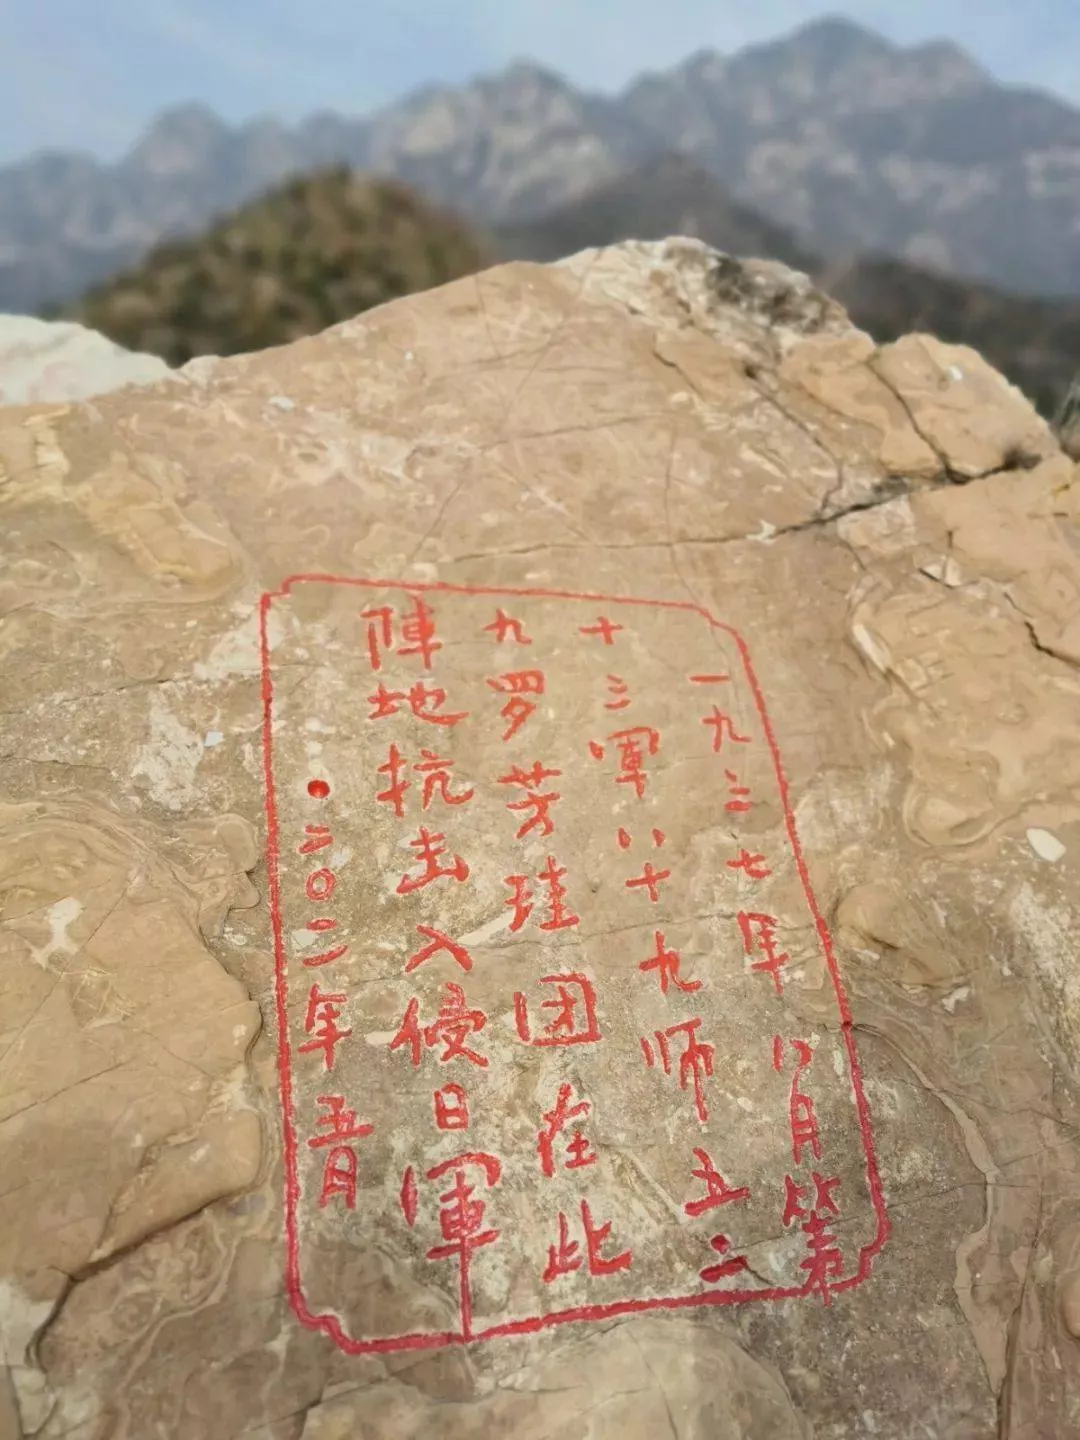 一九三七年八月第
十三軍八十九师五二
九罗芳珪团在此
陣地抗击入侵日軍
•二〇二一年五月